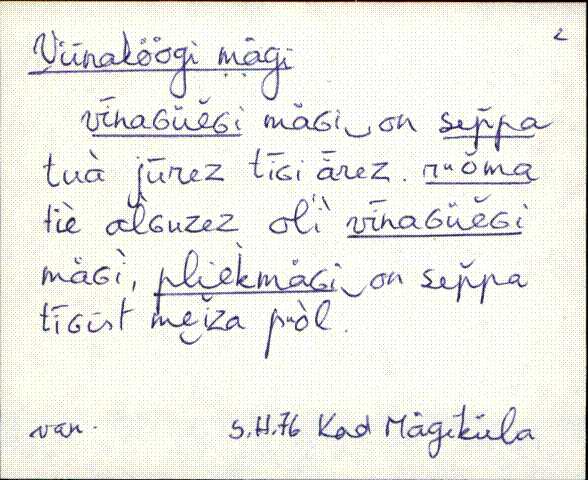 2
Viinaköögi mägi
vīnaGüĕGi mäGi‿on sep̆pa
tuà jūrez tīGi ärez. ruŏma
tiè alGuzez oli vīnaGüĕGi
mäGi, pliekmäGi‿on sep̆pa
tīGist meiza puòl.
van. S.H.76 Kad Mägiküla